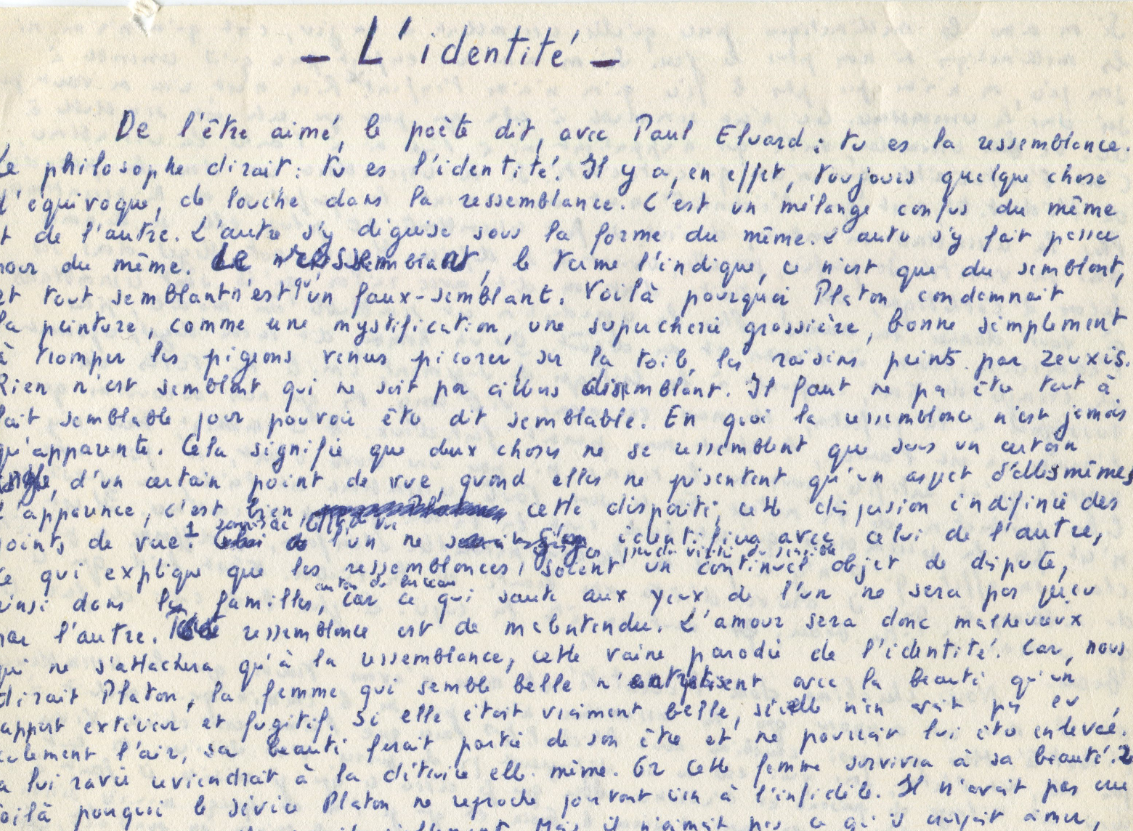 - L'identité -
De l'être aimé le poète dit avec Paul Eluard : tu es la ressemblance.
Le philosophe dirait : tu es l'identité. Il y a, en effet, toujours quelque chose
d'équivoque de louche dans la ressemblance. C'est un mélange confus du même
et de l'autre. L'autre s'y déguise sous la forme du même. L'autre s'y fait passer
pour du même. Le ressemblant, le terme l'indique, ce n'est que du semblant,
et tout semblant n'est qu'un faux-semblant. Voilà pourquoi Platon condamnait
la peinture, comme une mystification, une supercherie grossière, bonne simplement
à tromper les pigeons venus picorer sur la toile, les raisins peints par Zeuxis.
Rien n'est semblant qui ne soit par ailleurs dissemblant. Il faut ne pas être tout à
fait semblable pour pouvoir être dit semblable. En quoi la ressemblance n'est jamais
qu'apparente. Cela signifie que deux choses ne se ressemblent que sous un certain
angle, d'un certain point de vue, quand elles ne présentent qu'un aspect d'elles mêmes
L'apparence, c'est bien cette disparité, cette diffusion indéfinie des
points de vue l'un ne identifié avec celui de l'autre,
ce qui explique que les ressemblances soient un continuel objet de dispute,
ainsi dans les familles car ce qui saute aux yeux de l'un ne sera pas vu
par l'autre. ressemblance est de malentendu. L'amour sera donc malheureux
qui ne s'attachera qu'à la ressemblance, cette vaine parodie de l'identité. Car, nous
dirait Platon, la femme qui semble belle n'entretient avec la beauté qu'un
rapport extérieur et fugitif. Si elle était vraiment belle, si elle n'en avait pas eu,
seulement l'air, sa beauté ferait partie de son être et ne pourrait lui être enlevée.
la lui ravir reviendrait à la détruire elle même. Or cette femme survivra à sa beauté.
Voilà pourquoi le sévère Platon ne reproche pourtant rien à l'infidèle. Il n'avait pas
Mais il n'aimait pas ce qu'il aimer,